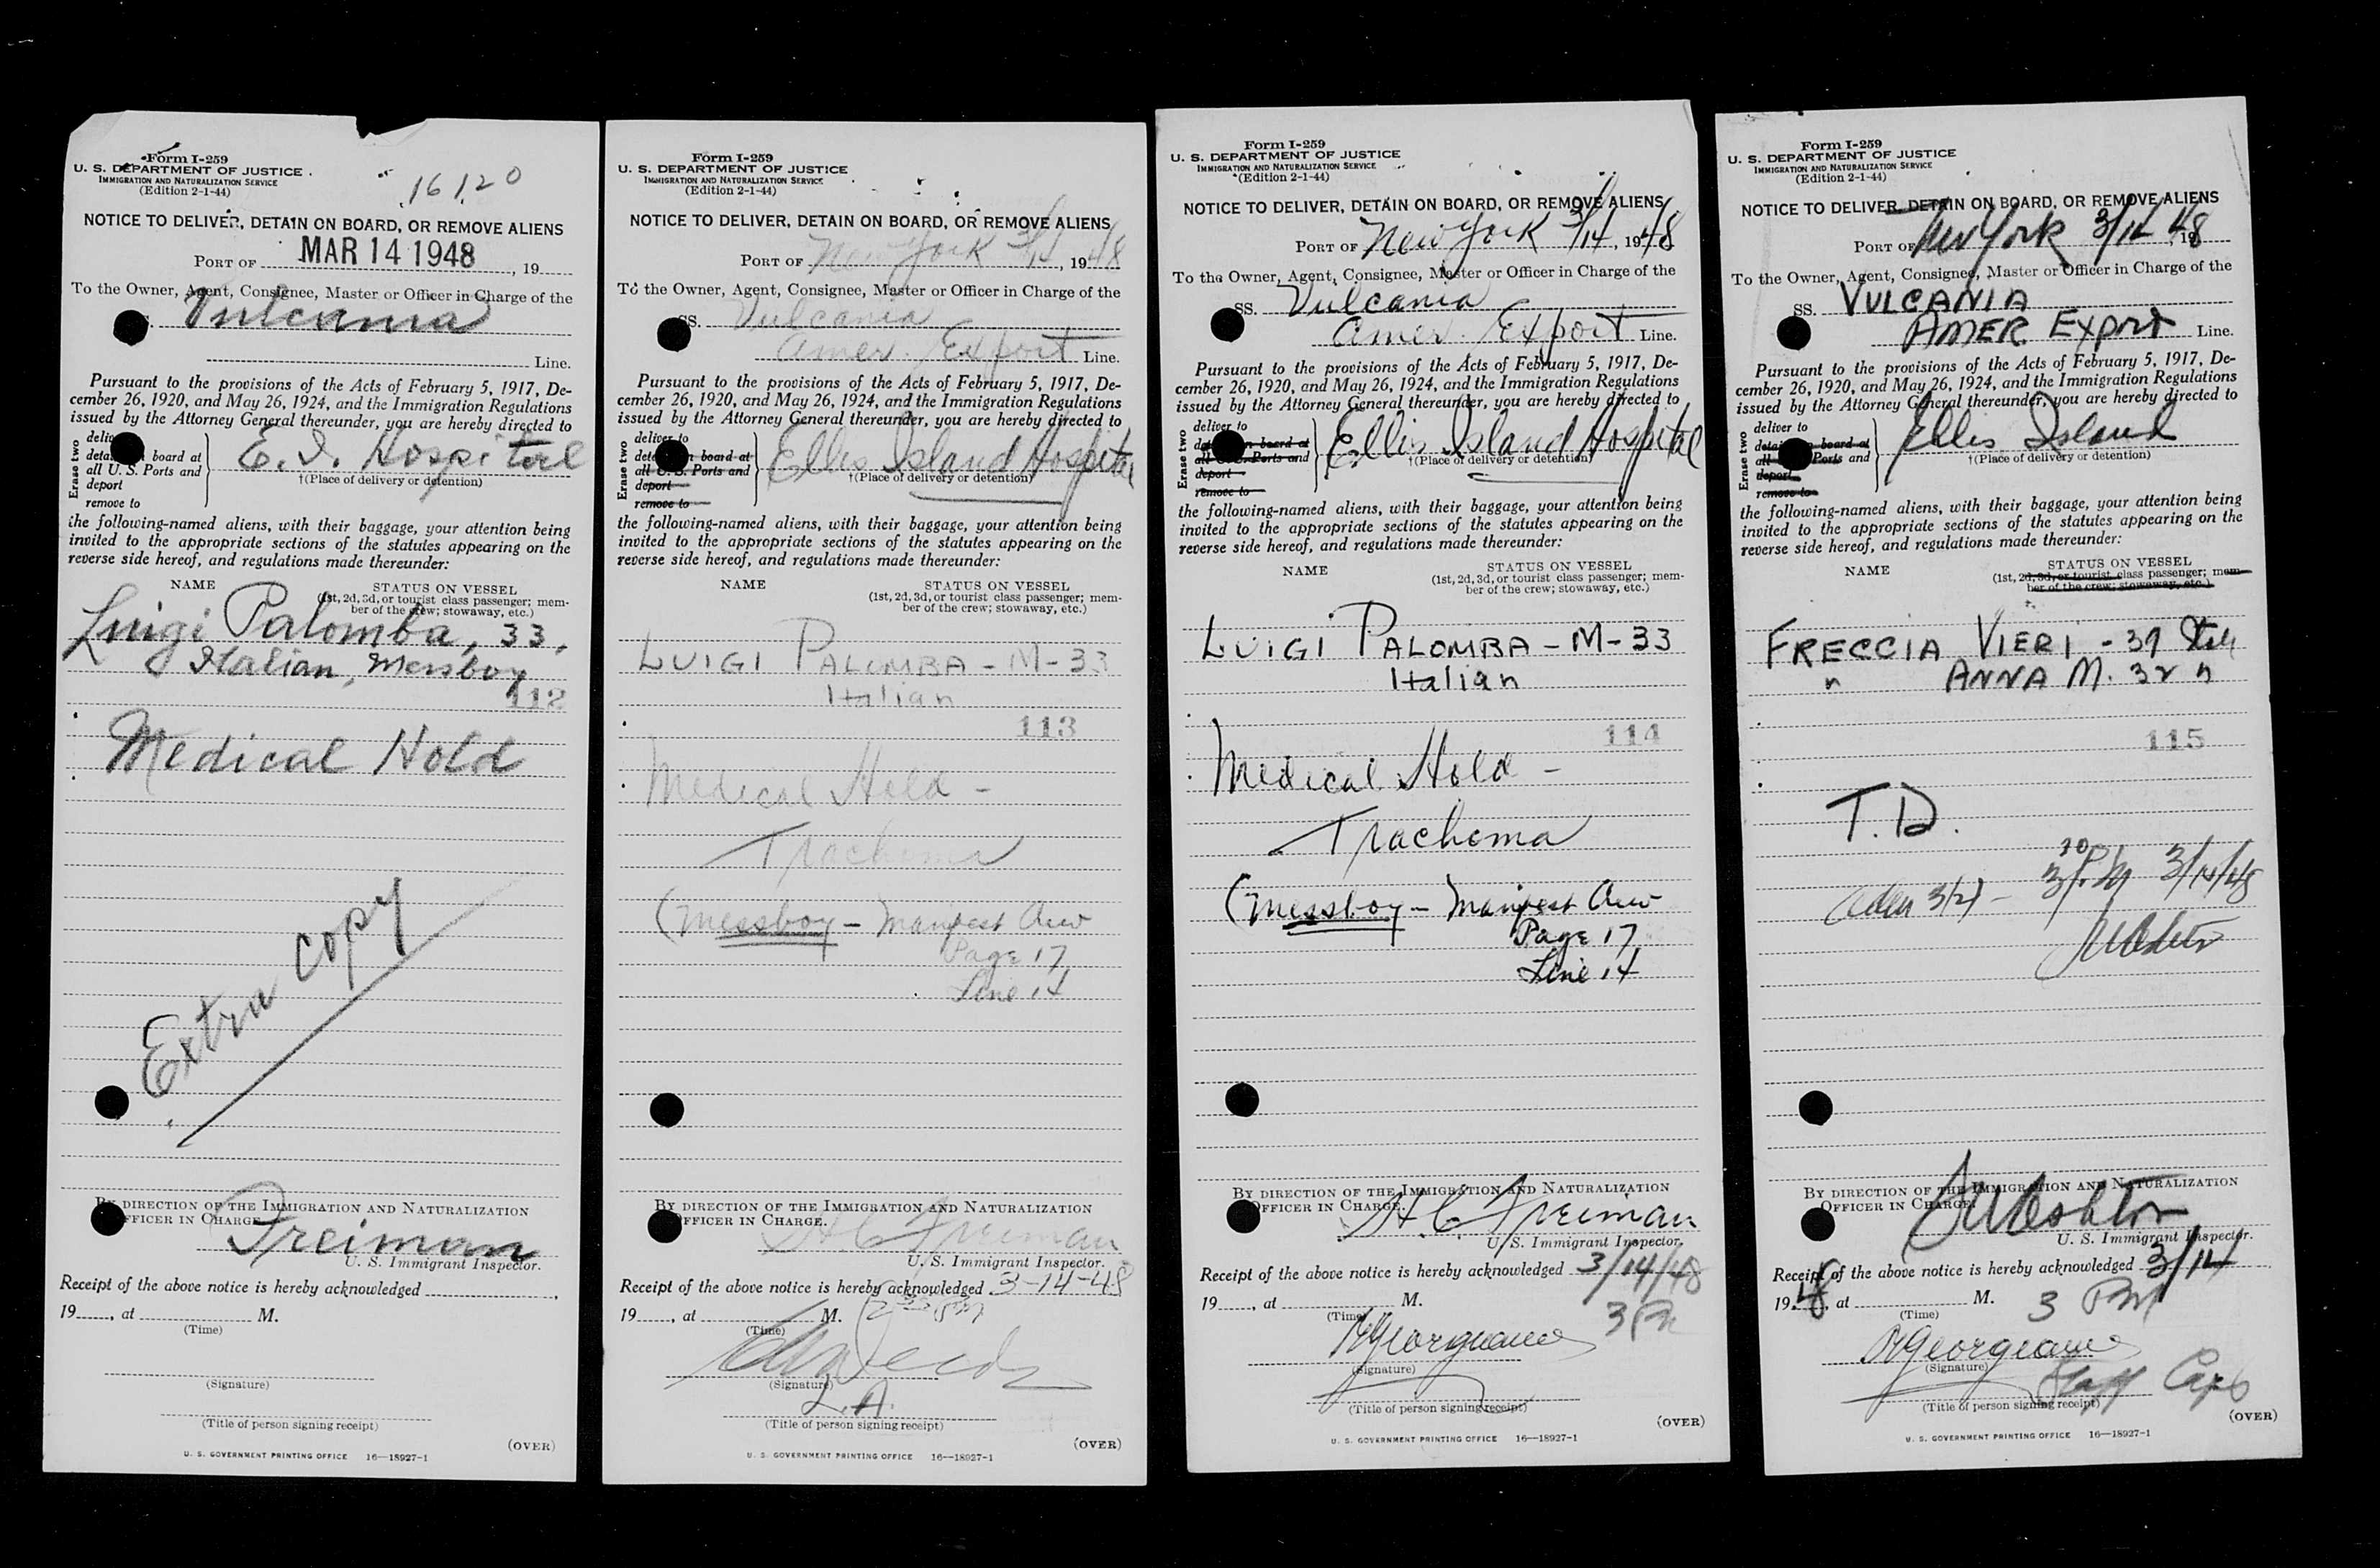 Form I-259
U. S. DEPARTMENT OF JUSTICE
IMMIGRATION AND NATURALIZATION SERVICE
(Edition 2-1-44)
16120
NOTICE TO DELIVER, DETAIN ON BOARD, OR REMOVE ALIENS
PORT OF MAR 14 1948, 19
To the Owner, Agent, Consignee, Master or Officer in Charge of the
Vulcania
Line.
Pursuant to the provisions of the Acts of February 5, 1917, De-
cember 26, 1920, and May 26, 1924, and the Immigration Regulations
issued by the Attorney General thereunder, you are hereby directed to
Erase two
deliver to
detain on board at
all U. S. Ports and
deport
remove to
E. I. Hospital
†(Place of delivery or detention)
the following-named aliens, with their baggage, your attention being
invited to the appropriate sections of the statutes appearing on the
reverse side hereof, and regulations made thereunder:
NAME
STATUS ON VESSEL
(1st, 2d, 3d, or tourist class passenger; mem-
ber of the crew; stowaway, etc.)
Luigi Palomba, 33,
Italian, Messboy
112
Medical Hold
Extra copy
BY DIRECTION OF THE IMMIGRATION AND NATURALIZATION
OFFICER IN CHARGE.
Freiman
U. S. Immigrant Inspector.
Receipt of the above notice is hereby acknowledged
19, at M.
(Time)
(Signature)
(Title of person signing receipt)
(OVER)
U. S. GOVERNMENT PRINTING OFFICE 16—18927-1
Form I-259
U. S. DEPARTMENT OF JUSTICE
IMMIGRATION AND NATURALIZATION SERVICE
(Edition 2-1-44)
NOTICE TO DELIVER, DETAIN ON BOARD, OR REMOVE ALIENS
PORT OF New York 3/14, 1948
To the Owner, Agent, Consignee, Master or Officer in Charge of the
SS. Vulcania
Amer. Export Line.
Pursuant to the provisions of the Acts of February 5, 1917, De-
cember 26, 1920, and May 26, 1924, and the Immigration Regulations
issued by the Attorney General thereunder, you are hereby directed to
Erase two
deliver to
detain on board at
all U. S. Ports and
deport
remove to
Ellis Island Hospital
†(Place of delivery or detention)
the following-named aliens, with their baggage, your attention being
invited to the appropriate sections of the statutes appearing on the
reverse side hereof, and regulations made thereunder:
NAME
STATUS ON VESSEL
(1st, 2d, 3d, or tourist class passenger; mem-
ber of the crew; stowaway, etc.)
LUIGI PALOMBA - M - 33
Italian
113
Medical Hold -
Trachoma
(Messboy - Manifest Crew
Page 17
Line 14
BY DIRECTION OF THE IMMIGRATION AND NATURALIZATION
OFFICER IN CHARGE.
H C Freiman
U. S. Immigrant Inspector.
Receipt of the above notice is hereby acknowledged 3-14-48
19, at M.
(Time)
(Signature)
L.A.
(Title of person signing receipt)
(OVER)
U. S. GOVERNMENT PRINTING OFFICE 16—18927-1
Form I-259
U. S. DEPARTMENT OF JUSTICE
IMMIGRATION AND NATURALIZATION SERVICE
(Edition 2-1-44)
NOTICE TO DELIVER, DETAIN ON BOARD, OR REMOVE ALIENS
PORT OF New York 3/14, 1948
To the Owner, Agent, Consignee, Master or Officer in Charge of the
SS. Vulcania
Amer. Export Line.
Pursuant to the provisions of the Acts of February 5, 1917, De-
cember 26, 1920, and May 26, 1924, and the Immigration Regulations
issued by the Attorney General thereunder, you are hereby directed to
Erase two
deliver to
detain on board at
all U. S. Ports and
deport
remove to
Ellis Island Hospital
†(Place of delivery or detention)
the following-named aliens, with their baggage, your attention being
invited to the appropriate sections of the statutes appearing on the
reverse side hereof, and regulations made thereunder:
NAME
STATUS ON VESSEL
(1st, 2d, 3d, or tourist class passenger; mem-
ber of the crew; stowaway, etc.)
LUIGI PALOMBA - M - 33
Italian
114
Medical Hold -
Trachoma
(Messboy - Manifest Crew
Page 17
Line 14
BY DIRECTION OF THE IMMIGRATION AND NATURALIZATION
OFFICER IN CHARGE.
H. C. Freiman
U. S. Immigrant Inspector.
Receipt of the above notice is hereby acknowledged 3/14/48
19, at M.
3 PM
(Time)
(Signature)
(Title of person signing receipt)
(OVER)
U. S. GOVERNMENT PRINTING OFFICE 16—18927-1
Form I-259
U. S. DEPARTMENT OF JUSTICE
IMMIGRATION AND NATURALIZATION SERVICE
(Edition 2-1-44)
NOTICE TO DELIVER, DETAIN ON BOARD, OR REMOVE ALIENS
PORT OF New York 3/14 1948
To the Owner, Agent, Consignee, Master or Officer in Charge of the
SS. VULCANIA
AMER Export Line.
Pursuant to the provisions of the Acts of February 5, 1917, De-
cember 26, 1920, and May 26, 1924, and the Immigration Regulations
issued by the Attorney General thereunder, you are hereby directed to
Erase two
deliver to
detain on board at
all U. S. Ports and
deport
remove to
Ellis Island
†(Place of delivery or detention)
the following-named aliens, with their baggage, your attention being
invited to the appropriate sections of the statutes appearing on the
reverse side hereof, and regulations made thereunder:
NAME
STATUS ON VESSEL
(1st, 2d, 3d, or tourist class passenger; mem-
ber of the crew; stowaway, etc.)
FRECCIA VIERI - 39
" ANNA M. 32 "
115
T.D.
3 30 P.M 3/14/48
BY DIRECTION OF THE IMMIGRATION AND NATURALIZATION
OFFICER IN CHARGE.
U. S. Immigrant Inspector.
Receipt of the above notice is hereby acknowledged 3/14
1948, at M. 3 PM
(Time)
(Signature)
Staff Capt
(Title of person signing receipt)
(OVER)
U. S. GOVERNMENT PRINTING OFFICE 16—18927-1